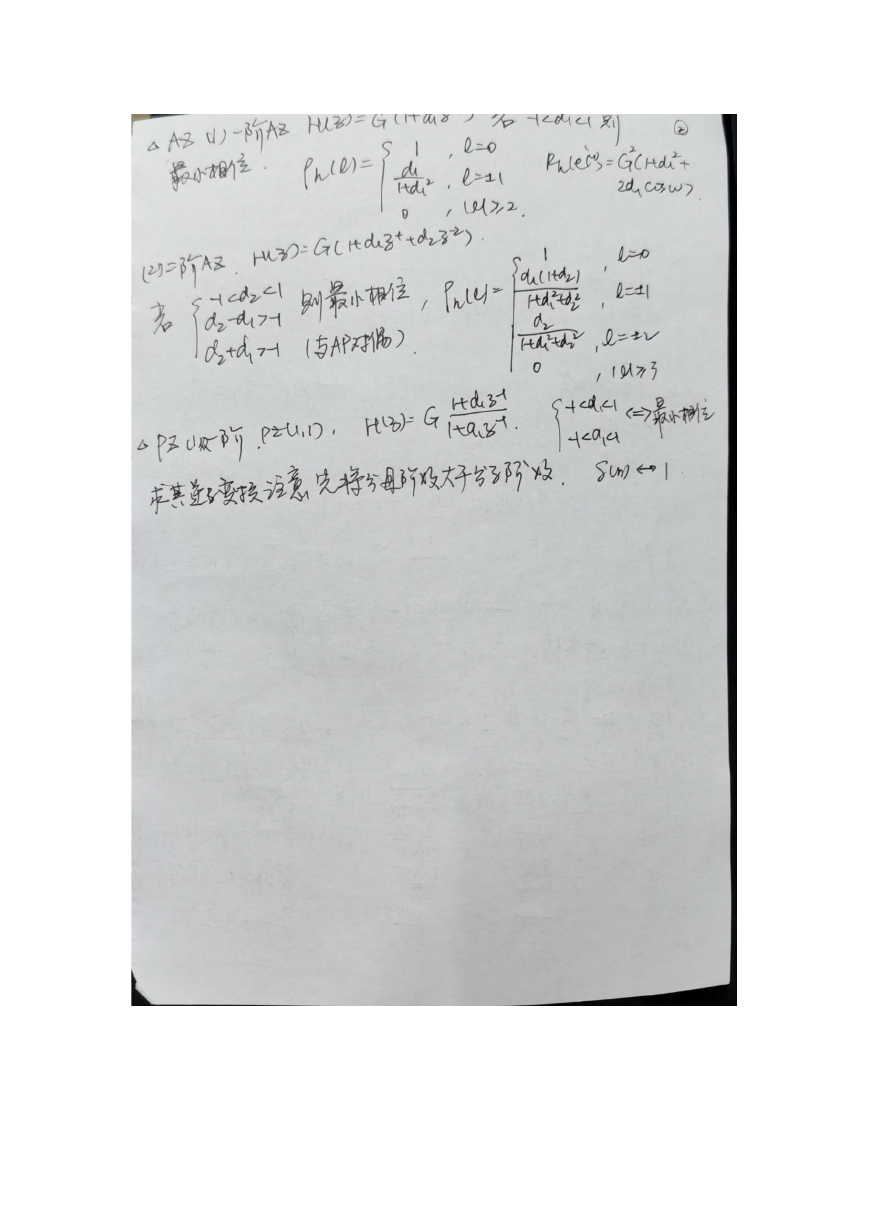 △ AZ (1) 一阶AZ H(z)=G(1+d₁z⁻¹) 若 -1<d₁<1 则 ②
最小相位. ρh(l)= { 1 , l=0
d₁/(1+d₁²) , l=±1
0 , |l|≥2.
Rh(e^jω)=G²(1+d₁²+
2d₁cosω).
(2) 二阶AZ. H(z)=G(1+d₁z⁻¹+d₂z⁻²).
若 { -1<d₂<1
d₂-d₁>-1
d₂+d₁>-1
则最小相位,
(与AP对偶).
ρh(l)= { 1 , l=0
d₁(1+d₂)/(1+d₁²+d₂²) , l=±1
d₂/(1+d₁²+d₂²) , l=±2
0 , |l|≥3
△ PZ (1) 一阶 PZ(1,1). H(z)=G (1+d₁z⁻¹)/(1+a₁z⁻¹). { -1<d₁<1
-1<a₁<1
<=>最小相位
求其逆z变换注意先将分母阶数大于分子阶数. δ(n)↔1